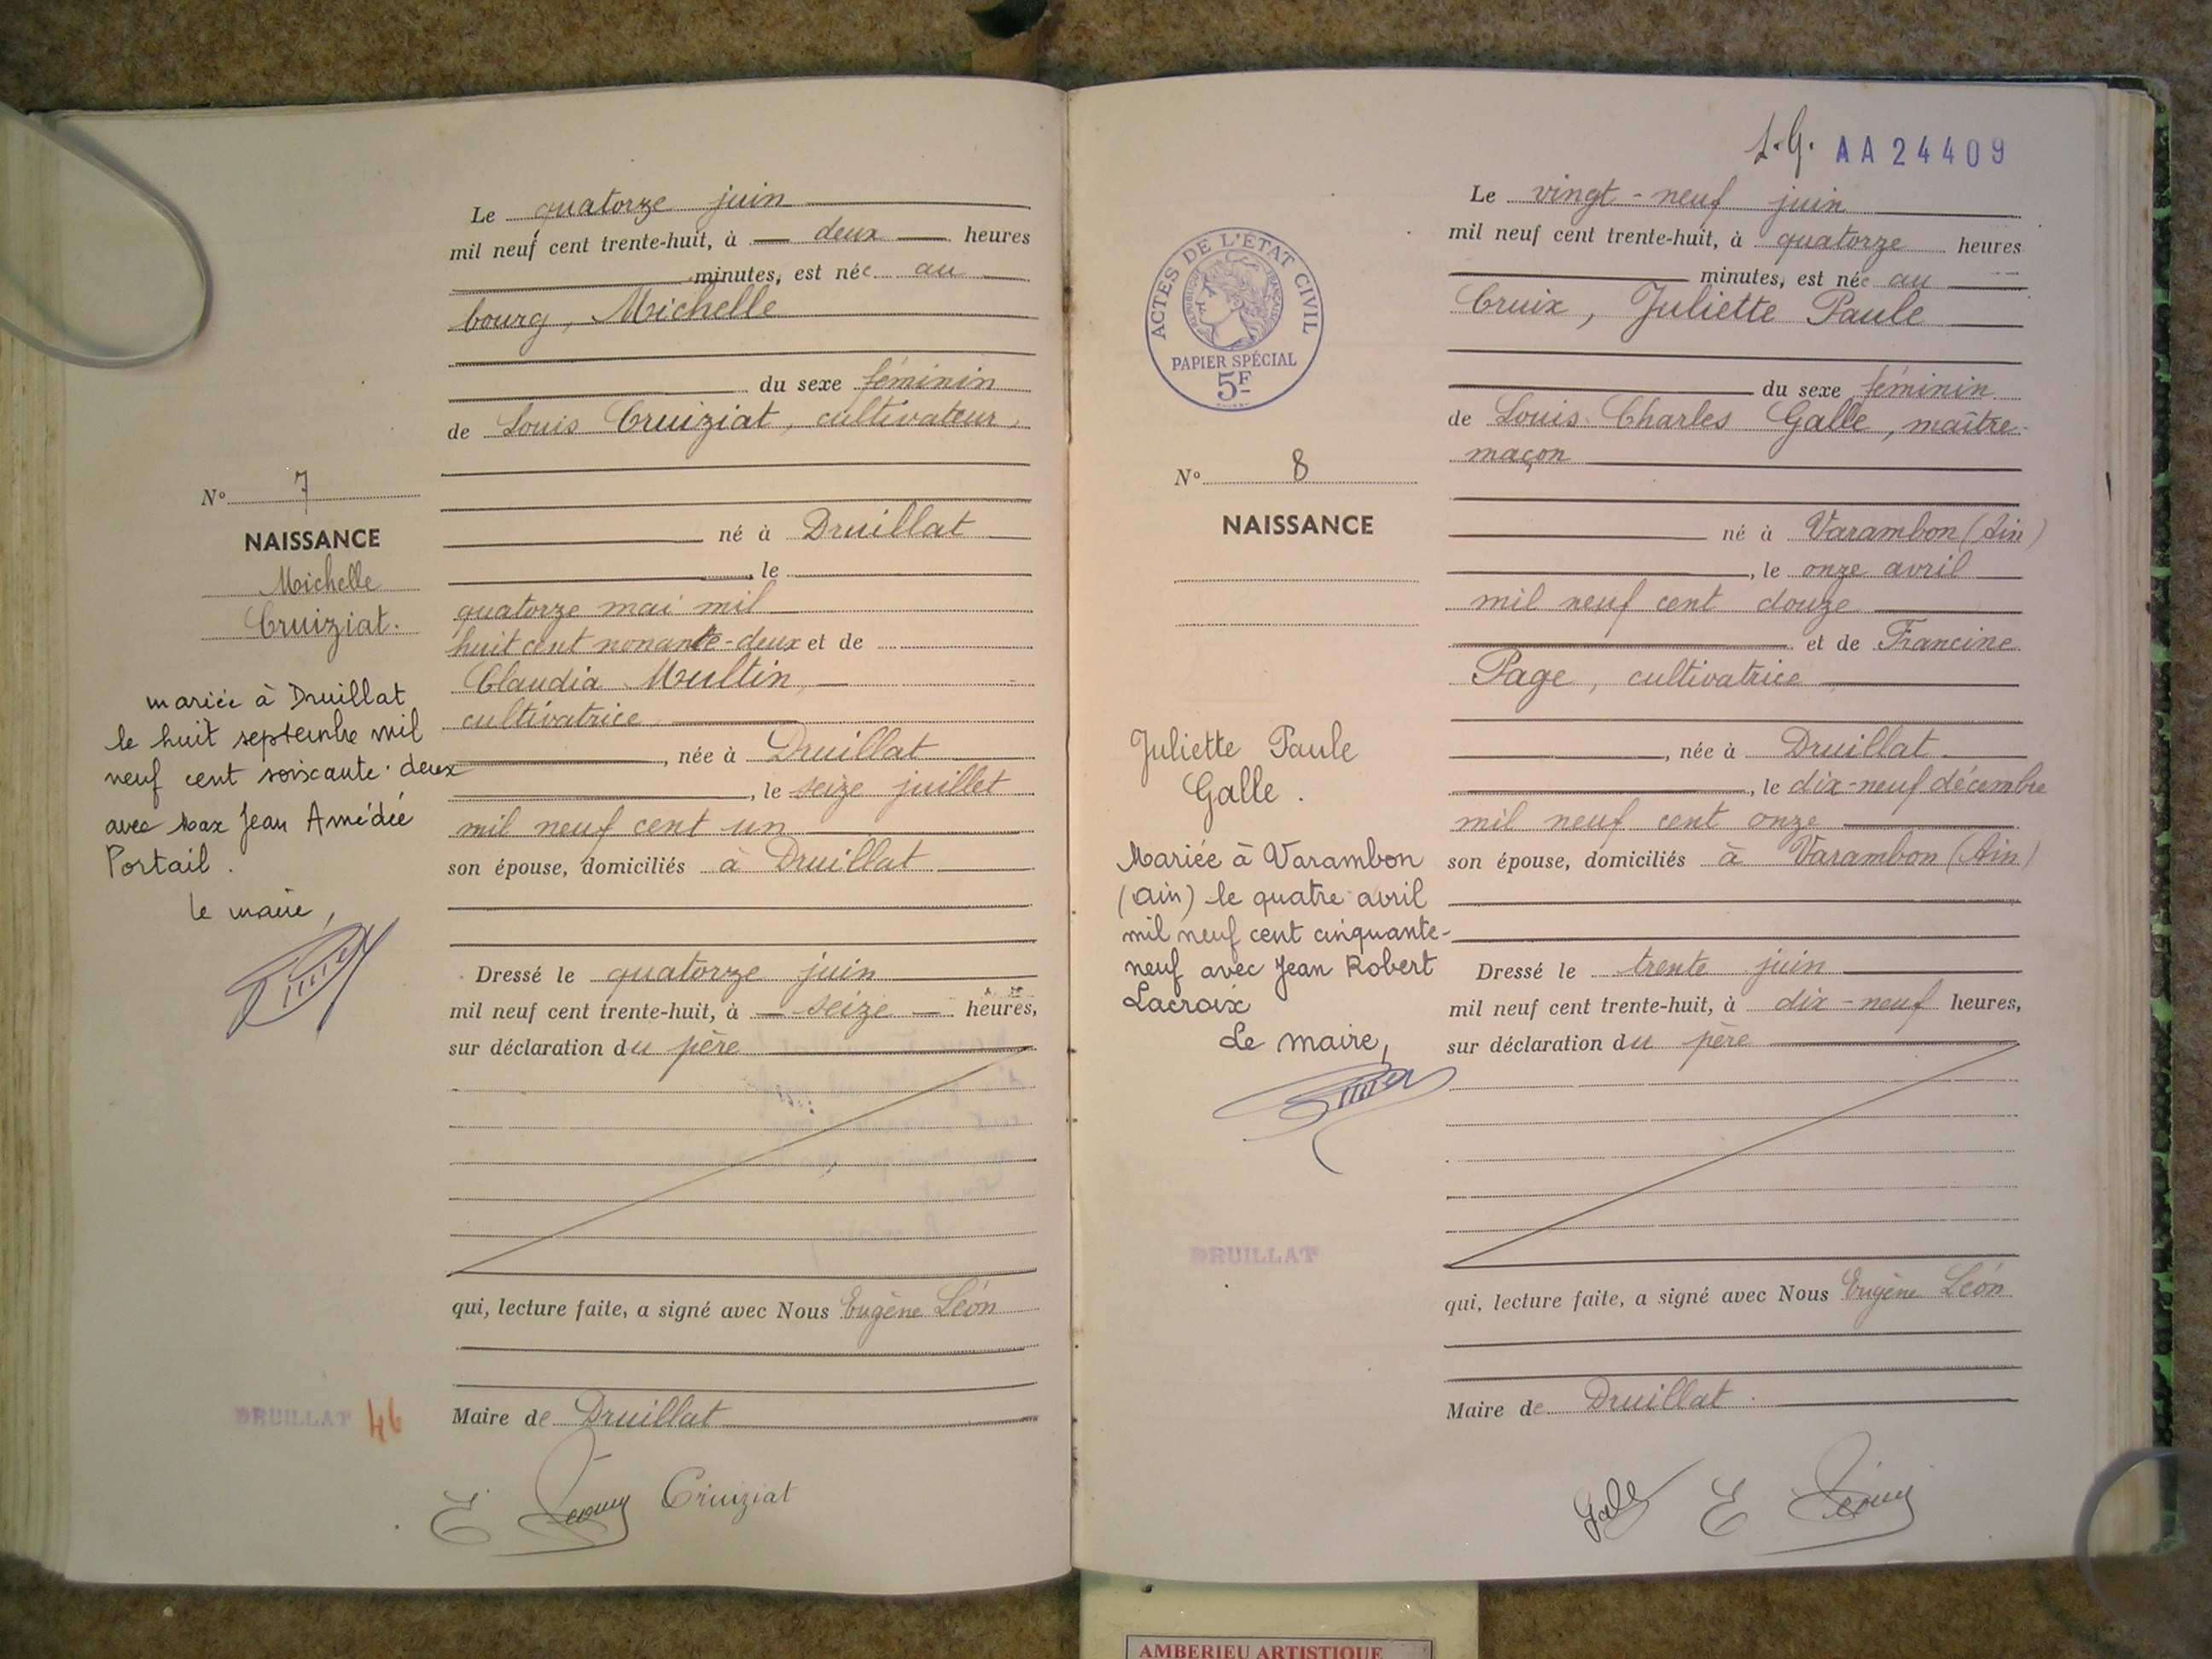 Le quatorze juin
mil neuf cent trente-huit, à deux heures
minutes, est née au
bourg, Michelle
du sexe féminin
de Louis Cruiziat, cultivateur,
N° 7
NAISSANCE
Michelle
Cruiziat.
né à Druillat
, le
quatorze mai mil
huit cent nonante-deux et de
Claudia Multin,
cultivatrice
, née à Druillat
, le seize juillet
mil neuf cent un
son épouse, domiciliés à Druillat
mariée à Druillat
le huit septembre mil
neuf cent soixante-deux
avec Max Jean Amédée
Portail.
le maire,
Dressé le quatorze juin
mil neuf cent trente-huit, à seize heures,
sur déclaration du père
qui, lecture faite, a signé avec Nous Eugène Léon
Maire de Druillat
DRUILLAT 46
Cruiziat
AA24409
Le vingt-neuf juin
mil neuf cent trente-huit, à quatorze heures
minutes, est née au
Cruix, Juliette Paule
du sexe féminin
de Louis Charles Galle, maître-
maçon
ACTES DE L'ÉTAT CIVIL
RÉPUBLIQUE FRANÇAISE
PAPIER SPÉCIAL
5F
N° 8
NAISSANCE
né à Varambon (Ain)
, le onze avril
mil neuf cent douze
et de Francine
Page, cultivatrice
, née à Druillat
, le dix-neuf décembre
mil neuf cent onze
son épouse, domiciliés à Varambon (Ain)
Juliette Paule
Galle.
Mariée à Varambon
(Ain) le quatre avril
mil neuf cent cinquante-
neuf avec Jean Robert
Lacroix
Le maire,
Dressé le trente juin
mil neuf cent trente-huit, à dix-neuf heures,
sur déclaration du père
DRUILLAT
qui, lecture faite, a signé avec Nous Eugène Léon
Maire de Druillat
Galle
AMBERIEU ARTISTIQUE